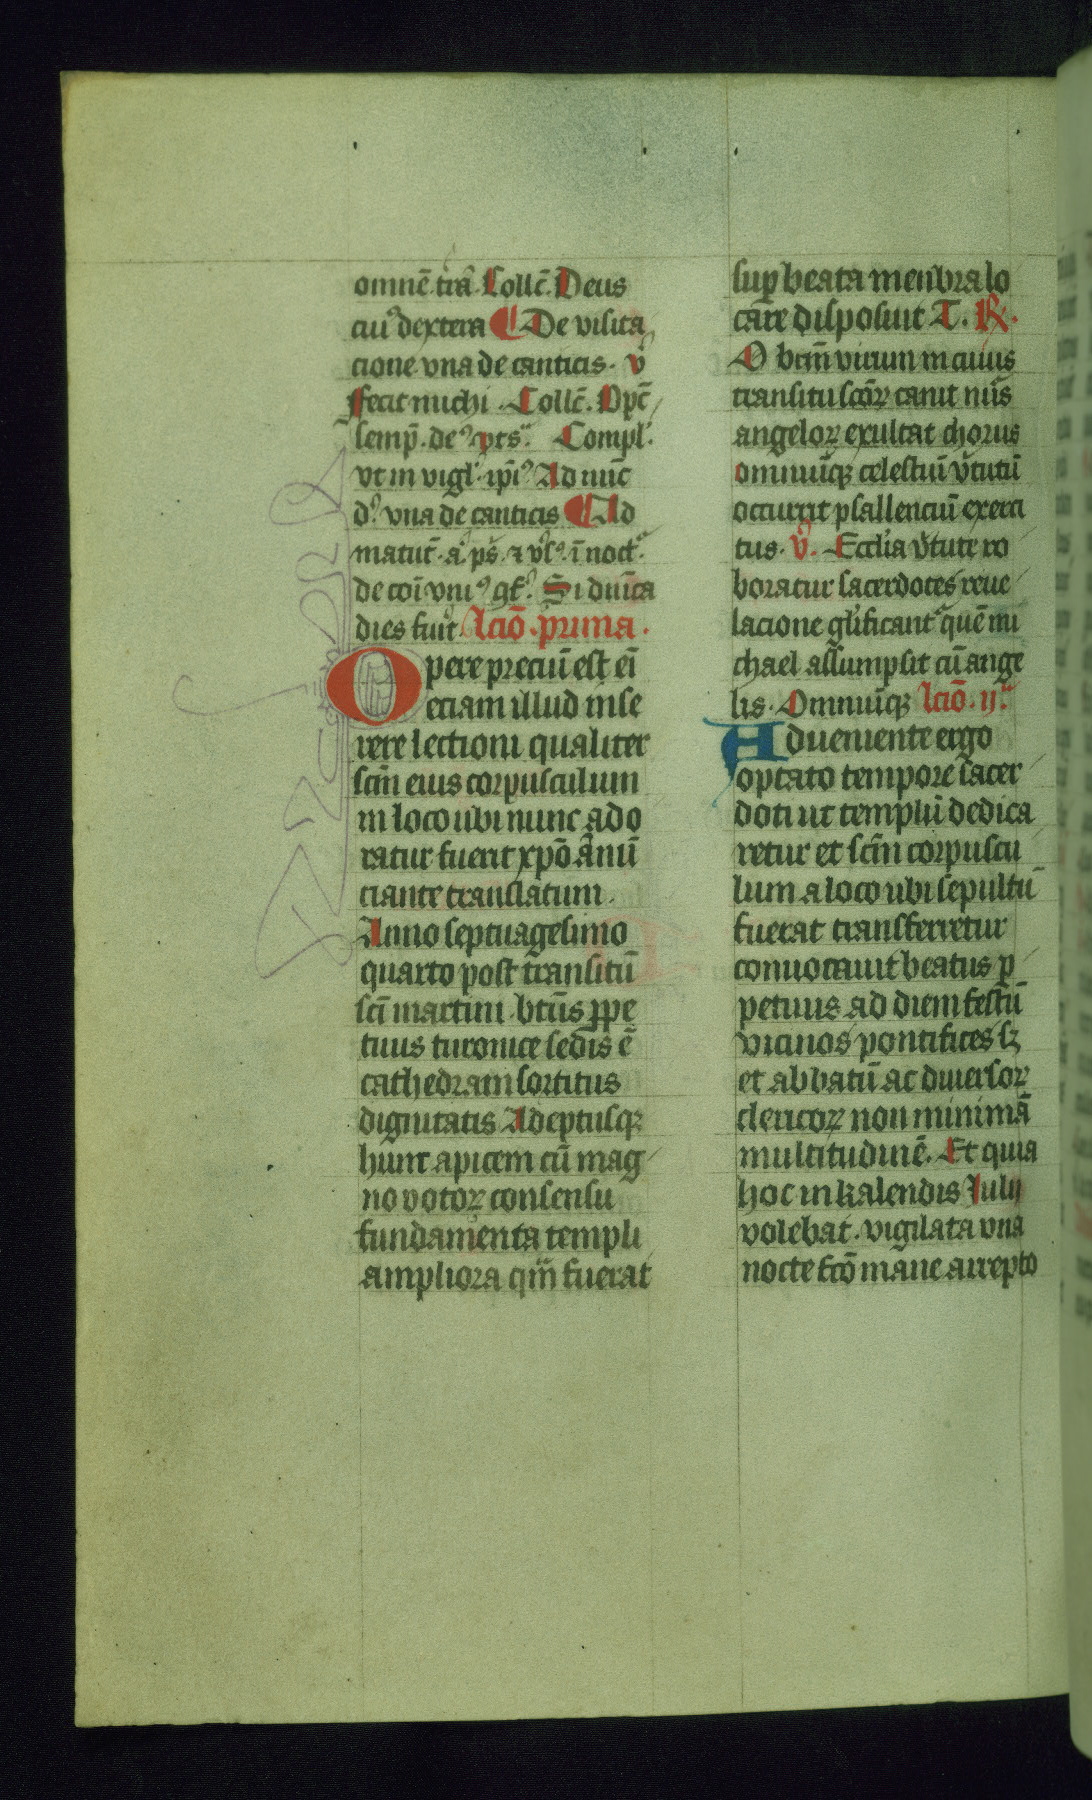 omnē trā. Collc̄. Deus
cuiꝰ dextera ¶ De visita
cione vna de canticis. v̄
ffecit michi. Collc̄. Opc̄
semp̄. deꝰ Compl'.
vt in vigl' ip̄iꝰ Ad nūc
dꝰ vna de canticis ¶ Ad
matut̄. a p̄s. ⁊ in noct̄.
de coī vniꝰ Si dn̄ica
dies fuīt. Lc̄io prima.
Opere preciū est eī
eciam illud inse
rere lectioni qualiter
scm̄ eius corpusculum
in loco ubi nunc ado
ratur fuerit xp̄o ānū
ciante translatum.
Anno septuagesimo
quarto post transitū
sc̄i martini bt̄us ꝑpe
tuus turonice sedis ē
cathedram sortitus
dignitatis Adeptusqꝫ
hunc apicem cū mag
no votoꝝ consensu
fundamenta templi
ampliora qm̄ fuerat
suꝑ beata menbra lo
care disposuit T. ℟.
O btm̄ virum in cuius
transitu scōꝝ canit nūs
angeloꝝ exultat chorus
omniūqꝫ celestiū v̄tutū
occurrit psallenciū exerci
tus. v̄. Eccl'ia v̄tute ro
boratur sacerdotes reue
lacione gl'ificant quē mi
chael assumpsit cū ange
lis. Omniūqꝫ lc̄io. ij.ᵃ
Adueniente ergo
optato tempore sacer
doti ut templū dedica
retur et scm̄ corpuscu
lum a loco ubi sepultū
fuerat transferretur
conuocauit beatus ꝑ
petuus ad diem festū
vicinos pontifices sꝫ
et abbatū ac diuersoꝝ
clericoꝝ non minimā
multitudinē. Et quia
hoc in kalendis Iulij
volebat. vigilata vna
nocte fc̄o mane arrepto